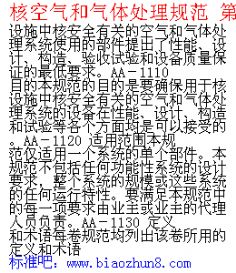 核空气和气体处理规范 第
设施中核安全有关的空气和气体处
理系统使用的部件提出了性能、设
计、构造、验收试验和设备质量保
证的最低要求。AA-1110
目的本规范的目的是要确保用于核
设施中核安全有关的空气和气体处
理系统的设备在性能、设计、构造
和试验等各个方面均是可以接受的
。AA-1120 适用范围本规
范仅适用一个系统的单个部件。本
规范不包括任何功能性系统的设计
要求，整个系统的规模或这些系统
的任何运行特性。要满足本规范中
的每一项要求由业主或业主的代理
人员负责。AA-1130 定义
和术语每卷规范均列出该卷所用的
定义和术语
标准吧：www.biaozhun8.com